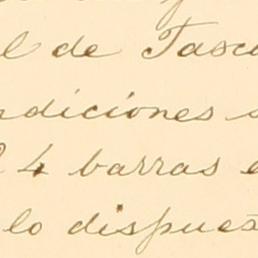 l de Tasc
ndiciones
4 barras
lo dispues